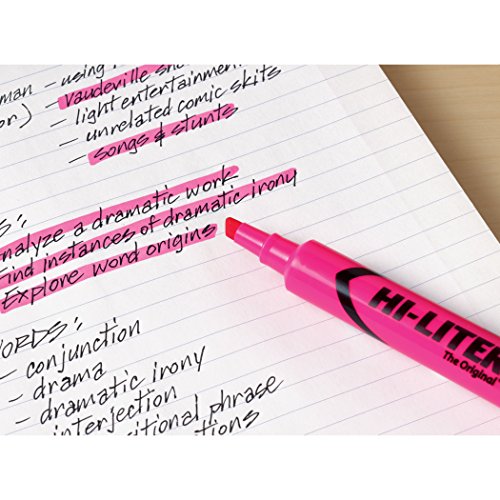 - using
man - vaudeville sho
or) - light entertainmen
- unrelated comic skits
- songs & stunts
S:
nalyze a dramatic work
Find instances of dramatic irony
Explore word origins
WORDS:
- conjunction
- drama
- dramatic irony
- interjection
itional phrase
tations
HI-LITER
The Original